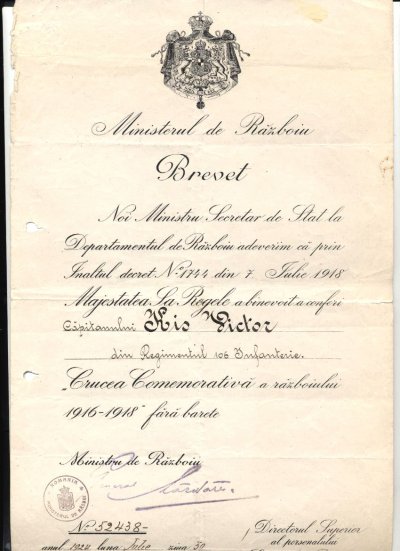 Ministerul de Războiu
Brevet
Noi Ministru Secretar de Stat la
Departamentul de Războiu adeverim că prin
Inaltul decret Nº 1744 din 7 Iulie 1918
Majestatea Sa Regele a binevoit a conferi
Căpitanului His Victor
din Regimentul 106 Infanterie.
„Crucea Comemorativă a războiului
1916-1918" fără barete
Ministru de Războiu
ROMANIA
Nº 52438-
Directorul Superior
al personalului
anul 1924 luna Iulie ziua 30